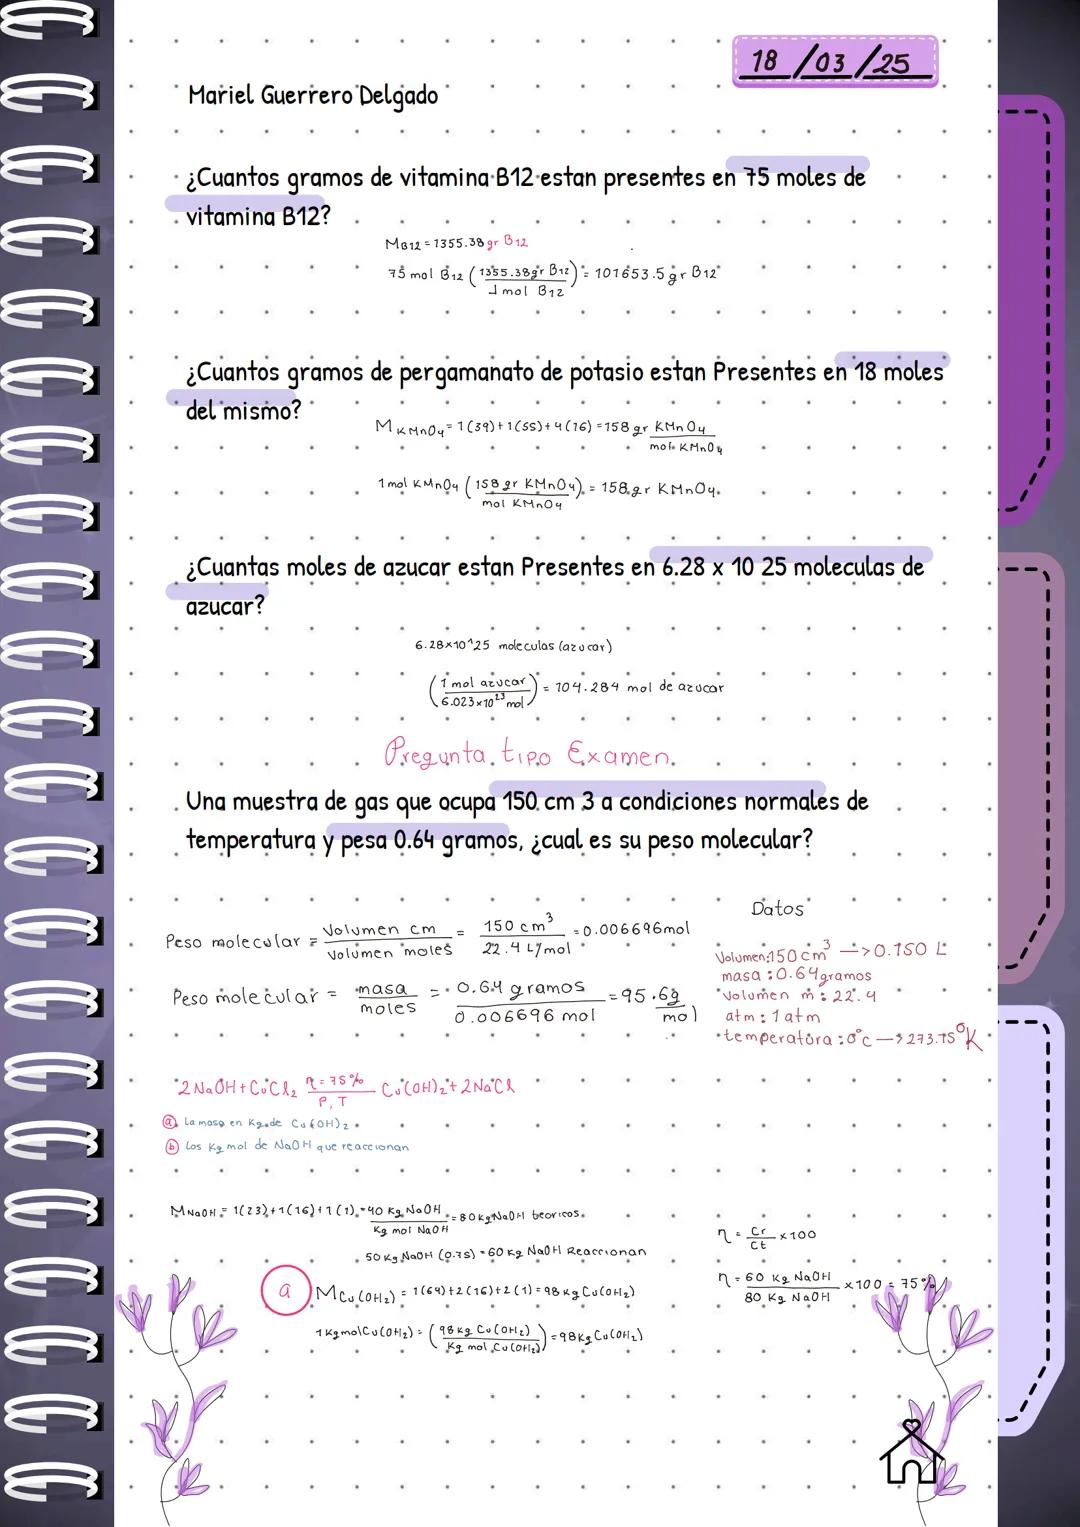 18 /03 /25
Mariel Guerrero Delgado
¿Cuantos gramos de vitamina B12 estan presentes en 75 moles de
vitamina B12?
MB12 = 1355.38 gr B12
75 mol B12 (1355.38gr B12 / 1 mol B12) = 101653.5 gr B12
¿Cuantos gramos de pergamanato de potasio estan Presentes en 18 moles
del mismo?
M KMnO4 = 1(39)+1(55)+4(16) = 158 gr KMnO4 / mol KMnO4
1 mol KMnO4 (158 gr KMnO4 / mol KMnO4) = 158 gr KMnO4
¿Cuantas moles de azucar estan Presentes en 6.28 x 10 25 moleculas de
azucar?
6.28x10^25 moleculas (azucar)
(1 mol azucar / 6.023x10^23 mol) = 104.284 mol de azucar
Pregunta tipo Examen
Una muestra de gas que ocupa 150 cm 3 a condiciones normales de
temperatura y pesa 0.64 gramos, ¿cual es su peso molecular?
Peso molecular = Volumen cm / Volumen moles = 150 cm³ / 22.4 L/mol = 0.006696mol
Peso molecular = masa / moles = 0.64 gramos / 0.006696 mol = 95.6g / mol
Datos
Volumen:150cm³ —> 0.150 L
masa : 0.64gramos
Volumen m : 22.4
atm : 1 atm
temperatura : 0°c —> 273.15°K
2NaOH + CuCl2 η = 75% / P, T Cu(OH)2 + 2NaCl
a La masa en Kg de Cu(OH)2
b Los Kg mol de NaOH que reaccionan
MNaOH = 1(23)+1(16)+1(1) = 40 Kg NaOH / Kg mol NaOH = 80Kg NaOH teoricos
50 Kg NaOH (0.75) = 60 Kg NaOH Reaccionan
η = Cr / Ct x100
η = 60 Kg NaOH / 80 Kg NaOH x100 = 75%
a MCu(OH2) = 1(64)+2(16)+2(1) = 98 Kg Cu(OH2)
1 KgmolCu(OH2) = (98 Kg Cu(OH2) / Kg mol Cu(OH2)) = 98Kg Cu(OH2)